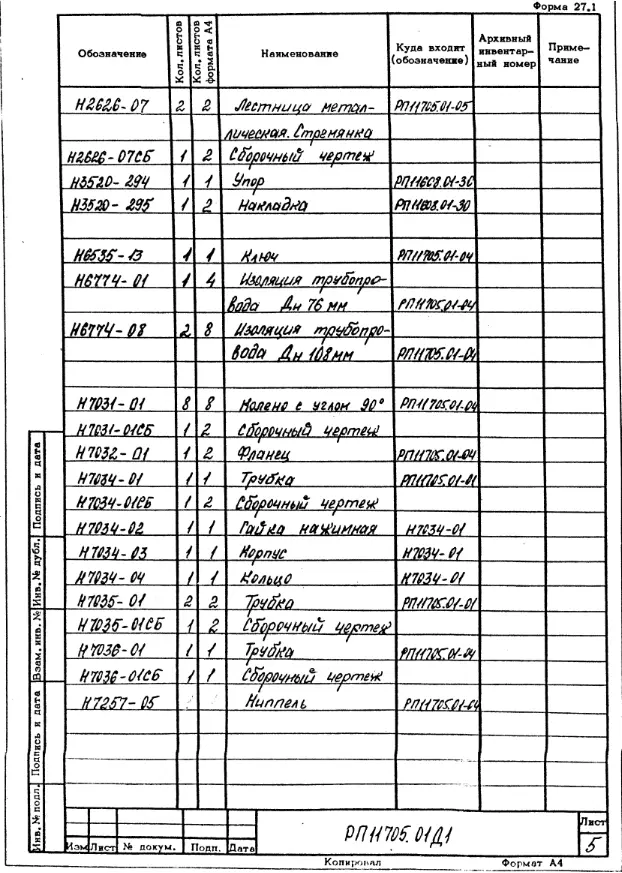 Форма 27.1
Обозначение Кол. листов Кол. листов формата А4 Наименование Куда входит (обозначение) Архивный инвентарный номер Примечание
Н2626-07 2 2 Лестница метал- РП11705.01-05
лическая. Стремянка
Н2626-07СБ 1 2 Сборочный чертеж
Н3520-294 1 1 Упор РП11608.01-30
Н3520-295 1 2 Накладка РП11608.01-30
Н6535-13 1 1 Ключ РП11705.01-04
Н6774-01 1 4 Изоляция трубопро-
вода Дн 76 мм РП11705.01-04
Н6774-08 2 8 Изоляция трубопро-
вода Дн 108мм РП11705.01-04
Н7031-01 8 8 Колено с углом 90° РП11705.01-04
Н7031-01СБ 1 2 Сборочный чертеж
Н7032-01 1 2 Фланец РП11705.01-04
Н7034-01 1 1 Трубка РП11705.01-01
Н7034-01СБ 1 2 Сборочный чертеж
Н7034-02 1 1 Гайка нажимная Н7034-01
Н7034-03 1 1 Корпус Н7034-01
Н7034-04 1 1 Кольцо Н7034-01
Н7035-01 2 2 Трубка РП11705.01-01
Н7035-01СБ 1 2 Сборочный чертеж
Н7036-01 1 1 Трубка РП11705.01-04
Н7036-01СБ 1 1 Сборочный чертеж
Н7257-05 Ниппель РП11705.01-04
Инв. № подл. Подпись и дата Взам. инв. № Инв. № дубл. Подпись и дата
РП11705.01Д1
Лист
5
Изм Лист № докум. Подп. Дата
Копировал Формат А4